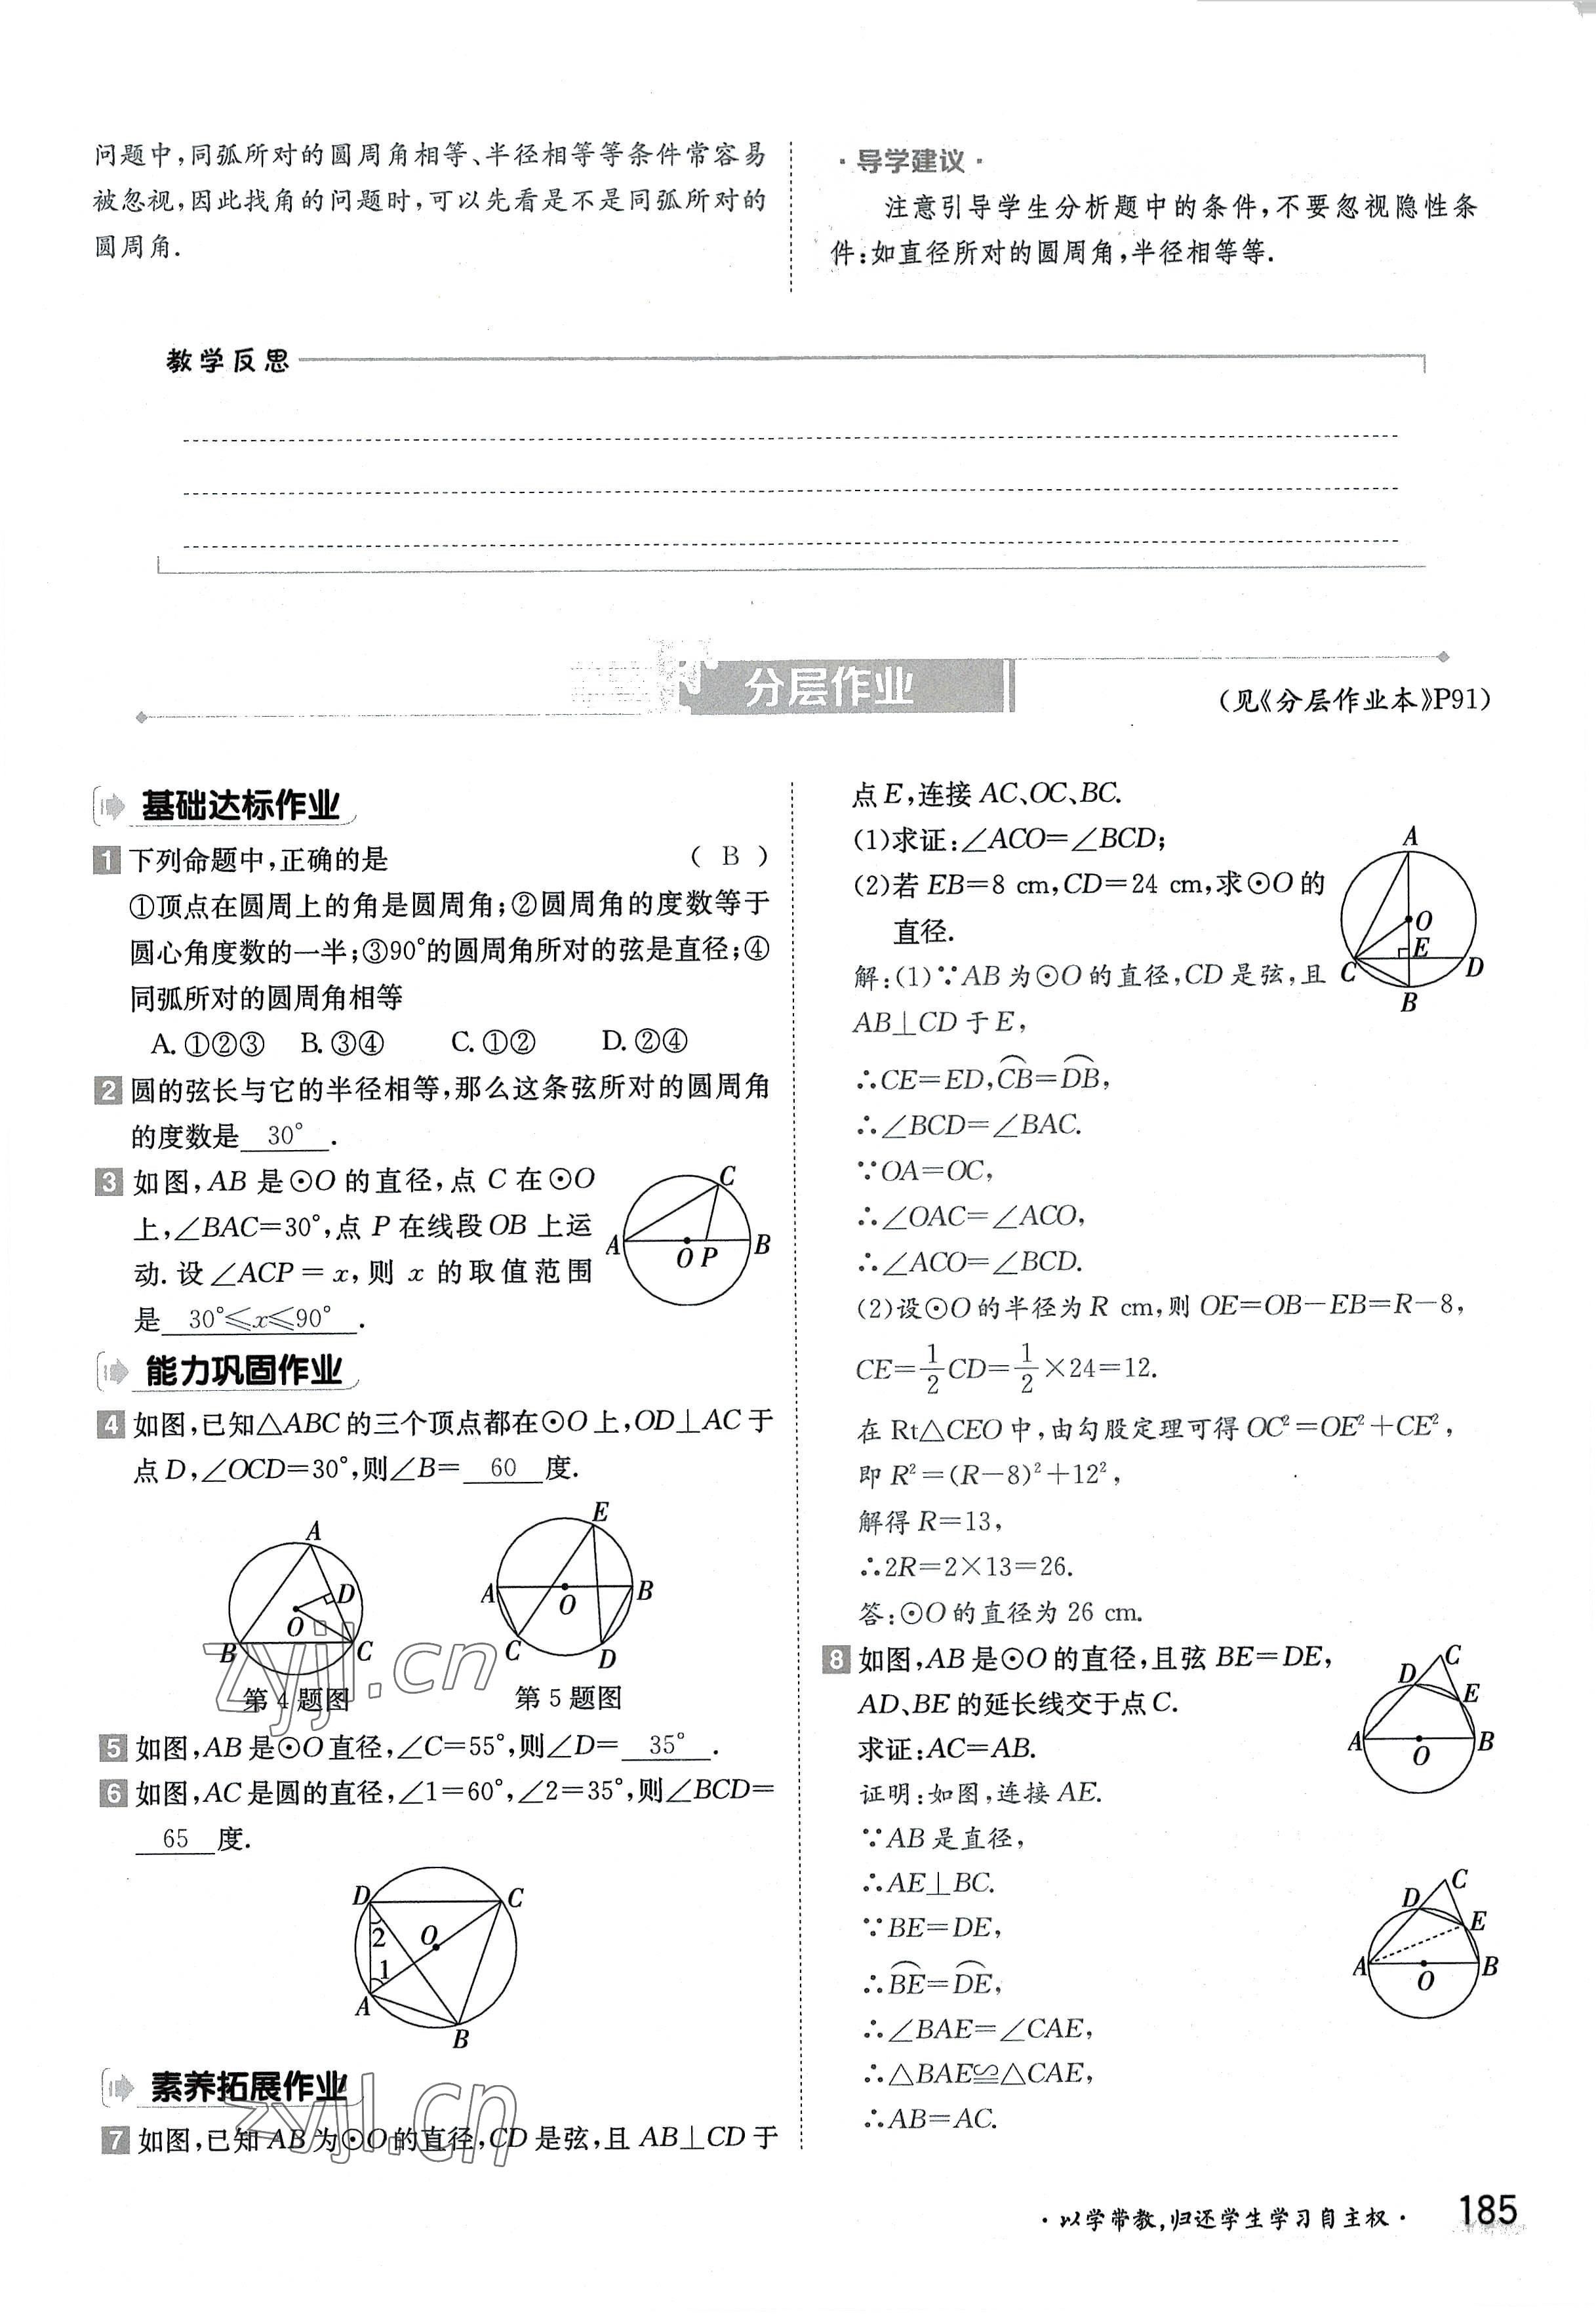 问题中,同弧所对的圆周角相等、半径相等等条件常容易
被忽视,因此找角的问题时,可以先看是不是同弧所对的
圆周角.
·导学建议·
注意引导学生分析题中的条件,不要忽视隐性条
件:如直径所对的圆周角,半径相等等.
教学反思
分层作业
(见《分层作业本》P91)
基础达标作业
1 下列命题中,正确的是 ( B )
①顶点在圆周上的角是圆周角;②圆周角的度数等于
圆心角度数的一半;③90°的圆周角所对的弦是直径;④
同弧所对的圆周角相等
A. ①②③ B. ③④ C. ①② D. ②④
2 圆的弦长与它的半径相等,那么这条弦所对的圆周角
的度数是 30° .
3 如图,AB 是⊙O 的直径,点 C 在⊙O
上,∠BAC=30°,点 P 在线段OB 上运
动. 设∠ACP = x,则 x 的取值范围
是 30°≤x≤90° .
C
A
O P
B
能力巩固作业
4 如图,已知△ABC的三个顶点都在⊙O上,OD⊥AC于
点D,∠OCD=30°,则∠B= 60 度.
A
D
O
B
C
第4题图
E
A
O
B
C
D
第5题图
5 如图,AB是⊙O直径,∠C=55°,则∠D= 35° .
6 如图,AC是圆的直径,∠1=60°,∠2=35°,则∠BCD=
65 度.
D
C
2
O
1
A
B
素养拓展作业
7 如图,已知AB为⊙O的直径,CD是弦,且AB⊥CD于
点E,连接AC、OC、BC.
(1)求证:∠ACO=∠BCD;
(2)若EB=8 cm,CD=24 cm,求⊙O的
直径.
A
O
E
C
D
B
解:(1)∵AB为⊙O的直径,CD是弦,且
AB⊥CD于E,
∴CE=ED,⌒CB=⌒DB,
∴∠BCD=∠BAC.
∵OA=OC,
∴∠OAC=∠ACO,
∴∠ACO=∠BCD.
(2)设⊙O的半径为R cm,则OE=OB-EB=R-8,
CE=1/2CD=1/2×24=12.
在Rt△CEO中,由勾股定理可得OC²=OE²+CE²,
即R²=(R-8)²+12²,
解得R=13,
∴2R=2×13=26.
答:⊙O的直径为26 cm.
8 如图,AB是⊙O的直径,且弦BE=DE,
AD、BE的延长线交于点C.
求证:AC=AB.
C
D
E
A
O
B
证明:如图,连接AE.
∵AB是直径,
∴AE⊥BC.
∵BE=DE,
∴⌒BE=⌒DE,
∴∠BAE=∠CAE,
∴△BAE≌△CAE,
∴AB=AC.
C
D
E
A
O
B
zyjl.cn
zyjl.cn
·以学带教,归还学生学习自主权·
185